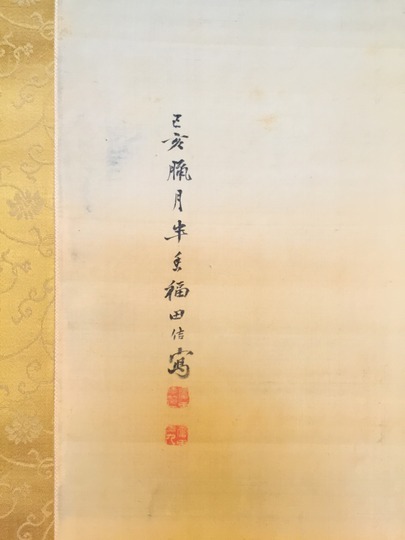 己亥臘月半香福田佶寫